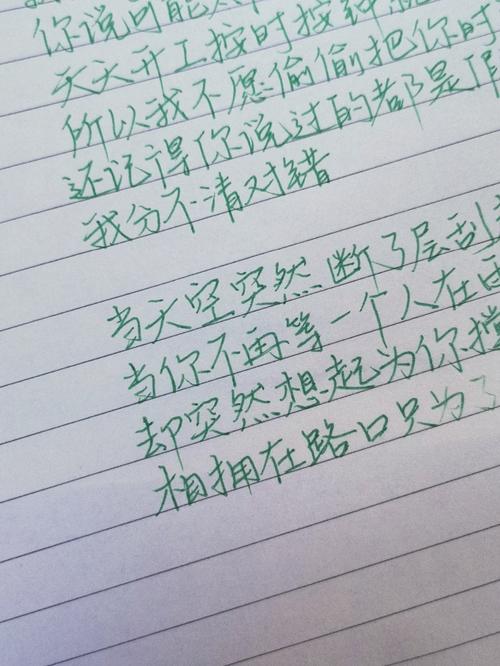 你说可能
天天开工按时按钟
所以我不愿偷偷把你时
还记得你说过的都是
我分不清对错
当天空突然断了层刮
当你不再等一个人在
却突然想起为你撑
相拥在路口只为了